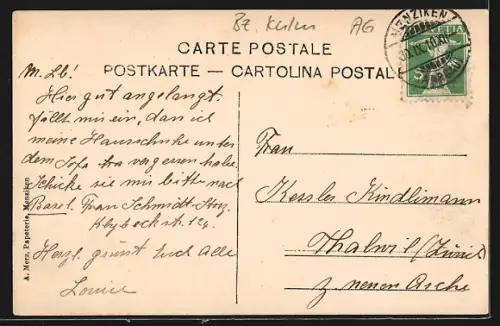 Bz. Kulm AG
MENZIKEN
HELVETIA
5
CARTE POSTALE
POSTKARTE — CARTOLINA POSTALE
M. Lb!
Hier gut angelangt.
fällt mir ein, dass ich
meine Hausschuhe unter
dem Sofa vergessen habe
Schicke sie mir bitte nach
Basel. Frau Schmidt
Klybeckstr. 124.
Herzl. grüsst Euch Alle
Louise
Frau
Kessler Kindlimann
Thalwil (Zürich)
z. neuen Asche
A. Merz, Papeterie, Menziken